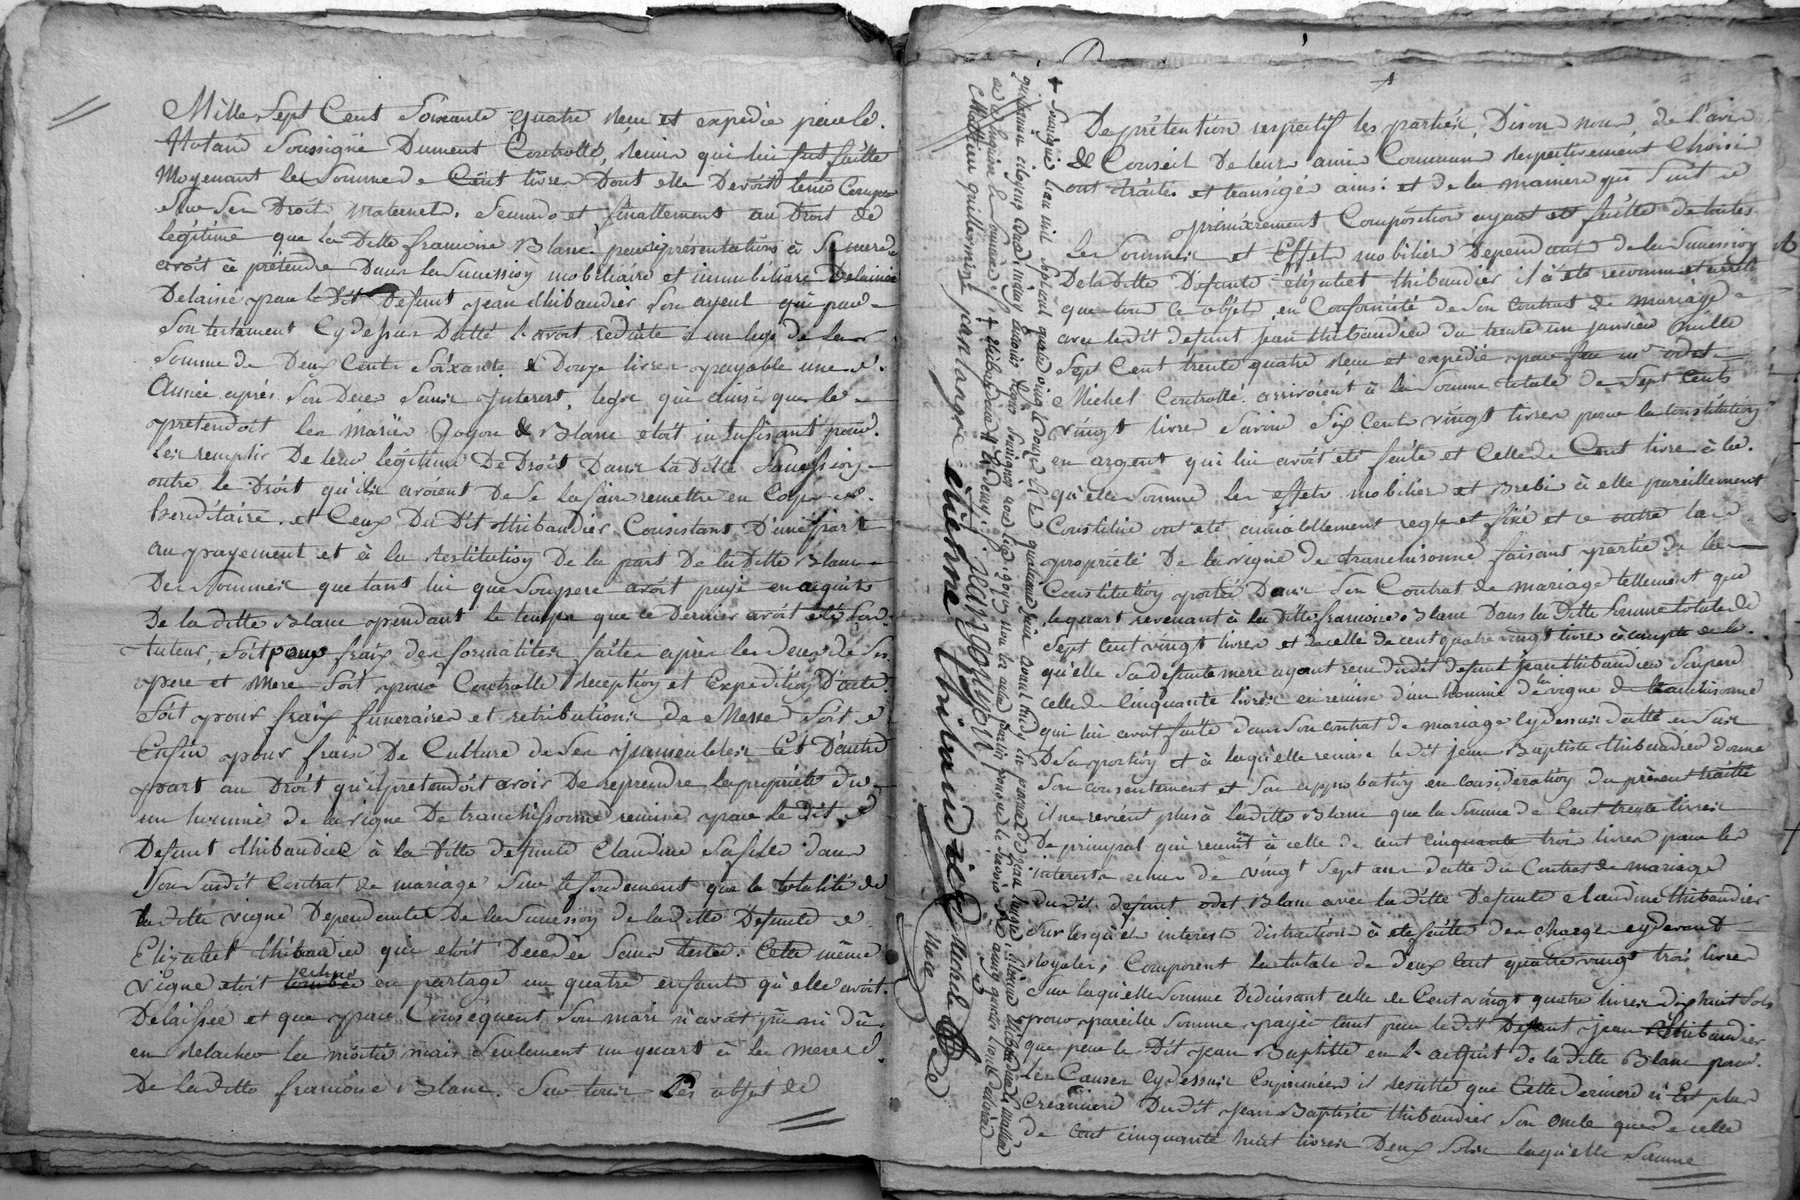 Mille Sept Cent Soixante quatre Reçu et expédié par le
Notaire Soussigné Dument Controllé, Remis qui lui fut faitte
Moyenant la Somme de Cent livres Dont elle Devoit tenir Compte
Sur Ses Droit Maternels. Secundo et finallement au Droit de
légitime que la Ditte françoise Blanc par représentation à Sa mere
avoit à prétendre Dans la Succession mobiliaire et immobiliaire
Delaissé par le Dit Defunt jean thibaudier Son ayeul qui par
Son testament Cydessus Datté l'avoit réduite a un legs de la
Somme de Deux Cents Soixante & Douze livres payable une
Année après Son Deces Sans interest, legs qui ainsi que le
prétendoit les mariés Goyon & Blanc etoit insufisant pour
les remplir De leur légitime De Droit Dans la Ditte Succession
outre le Droit qu'ils avoient De Se la faire remettre en Corps
hereditaire. et Ceux Du Dit thibaudier Consistant D'une part
au payement et à la restitution De la part De la Ditte Blanc
Des Sommes que tant lui que Son pere avoit payé en aquits
De la ditte Blanc pendant le temps que ce Dernier avoit eté Son
tuteur, Soit pour frais des formalités faites après le Deces de Ses
pere et Mere Soit pour Controlle reception et Expedition D'acte
Soit pour fraix funeraires et retributions de Messe Soit
Enfin pour frais De Culture de Ses immeubles Et D'autre
part au Droit qu'il prétendoit avoir De reprendre la propriété Du
un hommé de la vigne De tranchissonne remise par le Dit
Defunt thibaudier à la Ditte defunte Claudine Sa fille dans
Son Susdit Contrat de mariage Sur le fondement que la totalité de
la ditte vigne Dependante De la Succession de la ditte Defunte
Elizabet thibaudier qui etoit Decedée Sans tester. Cette même
vigne etoit en partage un quatre enfants qu'elle avoit
Delaissée et que par Conséquent Son mari n'avoit pu ni Dû
en relacher la moitié mais Seulement un quart à la mere
De la ditte françoise Blanc. Sur tous Les objet de
De prétention respectif les parties, Dison nous, de l'avis
& Conseil De leur amis Commun respectivement Choisi
ont traités et transigés ainsi et de la maniere qui Suit
primierement Composition ayant eté faitte de toutes
les Sommes et Effets mobilier Dependant de la Succession
De la Ditte Defunte elizabet thibaudier il a eté reconnu et arreté
que tous ce objets en Conformité de Son Contrat de mariage
avec le dit defunt jean thibaudier du trente un janvier Mille
Sept Cent trente quatre Reçu et expédié par feu mr odet
Michel Controllé arrivoient à la Somme totale de Sept Cents
vingt livres Savoir Six Cent vingt livres pour la Constitution
en argent qui lui avoit eté faite et Celle de Cent livre à la
qu'elle Somme les effets mobilier et Brebi à elle pareillement
Constitué ont eté amiablement reglé et fixé et ce outre la
propriété De la vigne de tranchissonne faisant partie de la
Constitution portée Dans Son Contrat de mariage tellement que
le quart revenant à la Ditte françoise Blanc Dans la Ditte Somme totale de
Sept Cent vingt livres et de celle de cent quatre vingt livre à compte de la
qu'elle Sa defunte mere ayant reçu du dit defunt jean thibaudier Son pere
celle de Cinquante livres en remise d'un hommé de la vigne de tranchissonne
qui lui avoit faite dans Son contrat de mariage Cydessus datté en Sus
De Sa portion et à laqu'elle remise le dit jean Baptiste thibaudier donne
Son consentement et Son approbation en consideration du présent traitté
il ne revient plus à la ditte Blanc que la Somme de Cent trente livres
De principal qui reunit à celle de Cent Cinquante trois livres pour les
interests echus de vingt Sept ans datte du Contrat de mariage
du dit defunt odet Blanc avec la ditte Defunte Claudine thibaudier
Sur lesquels interest distraction a eté faitte des charges cydevant
, Composent la totale de deux Cent quatre vingt trois livres
Sur laqu'elle Somme Deduisant celle de Cent vingt quatre livres dix huit Sols
pour pareille Somme payée tant par le dit Defunt jean thibaudier
que par le Dit jean Baptiste en l'acquit de la ditte Blanc pour
les Causes Cydessus Exprimées il resulte que Cette derniere n'Est plus
Creanciere Du dit jean Baptiste thibaudier Son oncle que de celle
de Cent cinquante huit livres Deux Sols laqu'elle Somme
jean largé etienne thibaudier
J: jean goyon
Michel